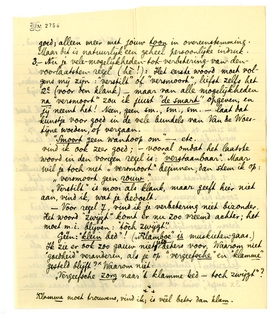 goed; alleen meer met jouw toog in overeenstemming.
Maar dit is natuurlijk een geheel persoonlijke indruk.
3. Nu je vele mogelijkheden tot verbetering van den
voorlaatsten regel (hè!): Het eerste woord moet vol-
gens mij zijn: "verstilt" of "versmoort", liefst zelfs het
2e (voor den klank) — maar van alle mogelijkheden
na "versmoort" zou ik juist "de smart" opgeven, en
jij neemt het! Nee, om, sm, sm, sm. — laat het
kunstje voor goed in de vele bundels van Van de Woe-
stijne worden, of vergaan.
"Smoort geen wanhoop om — etc.
vind ik ook zeer goed; — vooral omdat het laatste
woord in den vorigen regel is: "verstaanbaar". Maar
wil je toch met "versmoort" beginnen, dan stem ik op:
"versmoort geen rouw
"Verstilt" is mooi als klank, maar geeft hier niet
aan, vind ik, wat je bedoelt.
— Voor regel 7, vind ik je verbetering niet bizonder.
Het woord "zwijgt" komt er nu zoo vreemd achter; het
moet m.i. blijven: "toch zwijgt".
Géén: "klein bed"!
Ik zie er ook zoo gauw niets beters voor. Waarom niet
"gedhield veranderen, als je op "vergeefsche" en klamme
gesteld blijft?" Waarom niet
"Vergeefsche zorg naast 't klamme bed — toch zwijgt"?
Klamme moet trouwens, vind ik, is véél beter dan klam.